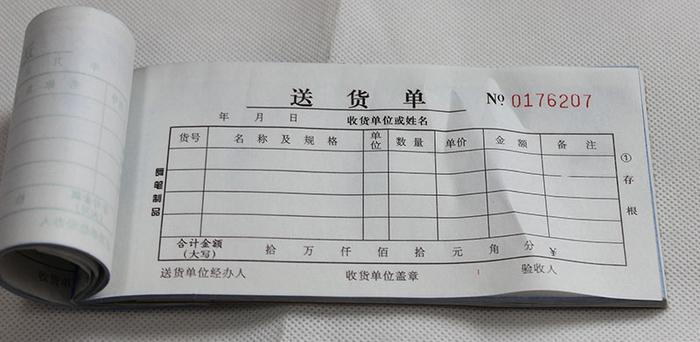 送货单 № 0176207
年 月 日 收货单位或姓名
货号 名称及规格 单位 数量 单价 金额 备注
①存根
笔制品
合计金额(大写) 拾 万 仟 佰 拾 元 角 分 ¥
送货单位经办人 收货单位盖章 验收人
收货单